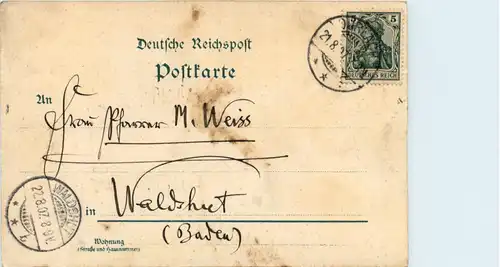 5
DEUTSCHES REICH
21.8.0
Deutsche Reichspost
Postkarte
An
Frau Pfarrer M. Weiss
in Waldshut
(Baden)
22.8.07. 8-9V.
Wohnung
(Straße und Hausnummer)